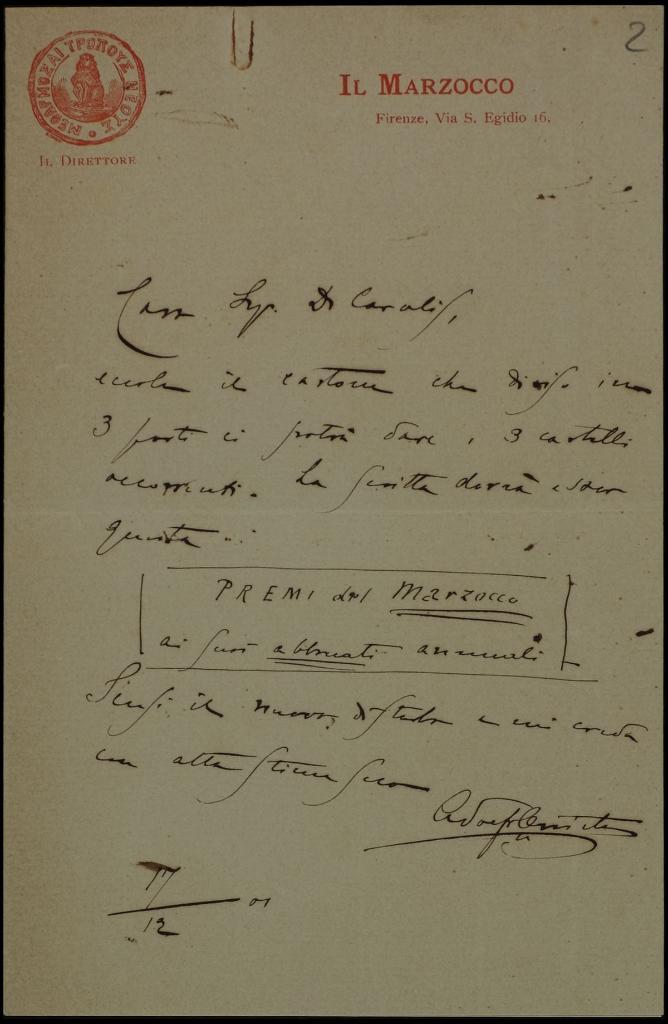 2
ΜΕΘΑΡΜΟΣΑΙ ΤΡΟΠΟΥΣ ΝΕΟΥΣ
IL MARZOCCO
Firenze, Via S. Egidio 16.
IL DIRETTORE
Caro Sig. De Carolis,
eccole il cartone che diviso in
3 parti ci potrà dare i 3 cartelli
occorrenti. La scritta dovrà esser
questa:
PREMI del Marzocco
ai suoi abbonati annuali
Scusi il nuovo disturbo e mi creda
con alta stima suo
Adolfo Orvieto
17
12
01